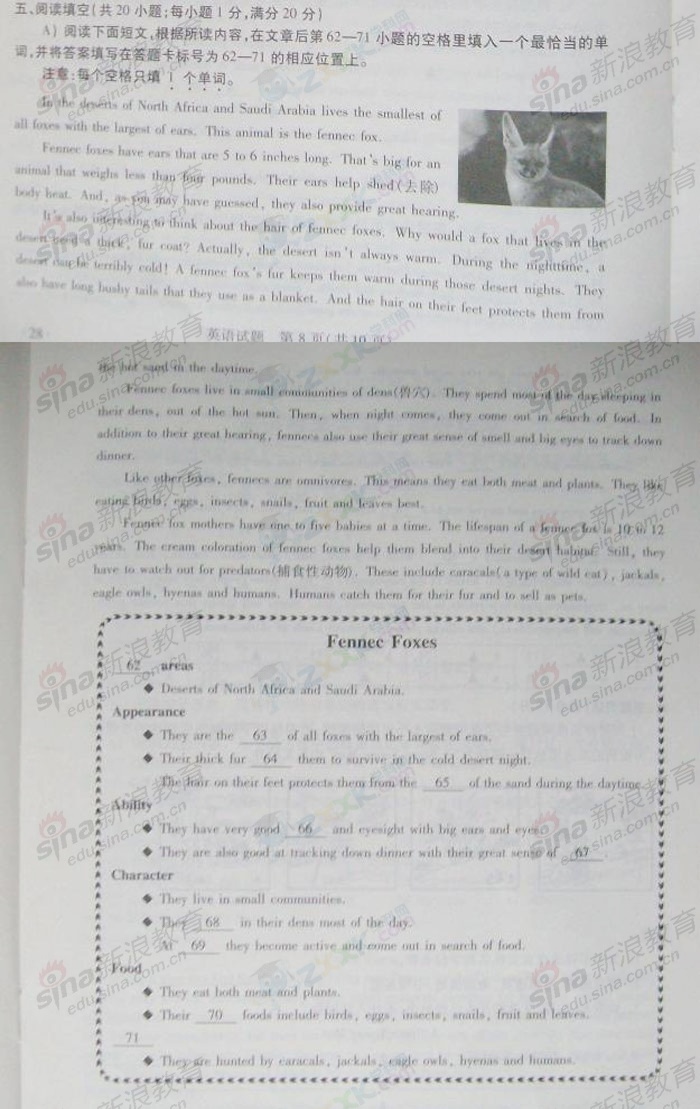 五、阅读填空(共20小题;每小题1分,满分20分)
A) 阅读下面短文,根据所读内容,在文章后第62—71小题的空格里填入一个最恰当的单
词,并将答案填写在答题卡标号为62—71的相应位置上。
注意:每个空格只填1个单词。
In the deserts of North Africa and Saudi Arabia lives the smallest of
all foxes with the largest of ears. This animal is the fennec fox.
Fennec foxes have ears that are 5 to 6 inches long. That's big for an
animal that weighs less than four pounds. Their ears help shed(去除)
body heat. And, as you may have guessed, they also provide great hearing.
It's also interesting to think about the hair of fennec foxes. Why would a fox that lives in the
desert need a thick, fur coat? Actually, the desert isn't always warm. During the nighttime, a
desert can be terribly cold! A fennec fox's fur keeps them warm during those desert nights. They
also have long bushy tails that they use as a blanket. And the hair on their feet protects them from
28 英语试题 第8页(共10页)
the hot sand in the daytime.
Fennec foxes live in small communities of dens(兽穴). They spend most of the day sleeping in
their dens, out of the hot sun. Then, when night comes, they come out in search of food. In
addition to their great hearing, fennecs also use their great sense of smell and big eyes to track down
dinner.
Like other foxes, fennecs are omnivores. This means they eat both meat and plants. They like
eating birds, eggs, insects, snails, fruit and leaves best.
Fennec fox mothers have one to five babies at a time. The lifespan of a fennec fox is 10 to 12
years. The cream coloration of fennec foxes help them blend into their desert habitat. Still, they
have to watch out for predators(捕食性动物). These include caracals(a type of wild cat), jackals,
eagle owls, hyenas and humans. Humans catch them for their fur and to sell as pets.
Fennec Foxes
62 areas
◆ Deserts of North Africa and Saudi Arabia.
Appearance
◆ They are the 63 of all foxes with the largest of ears.
◆ Their thick fur 64 them to survive in the cold desert night.
The hair on their feet protects them from the 65 of the sand during the daytime.
Ability
◆ They have very good 66 and eyesight with big ears and eyes.
◆ They are also good at tracking down dinner with their great sense of 67 .
Character
◆ They live in small communities.
◆ They 68 in their dens most of the day.
At 69 they become active and come out in search of food.
Food
◆ They eat both meat and plants.
◆ Their 70 foods include birds, eggs, insects, snails, fruit and leaves.
71
◆ They are hunted by caracals, jackals, eagle owls, hyenas and humans.
sina 新浪教育
edu.sina.com.cn